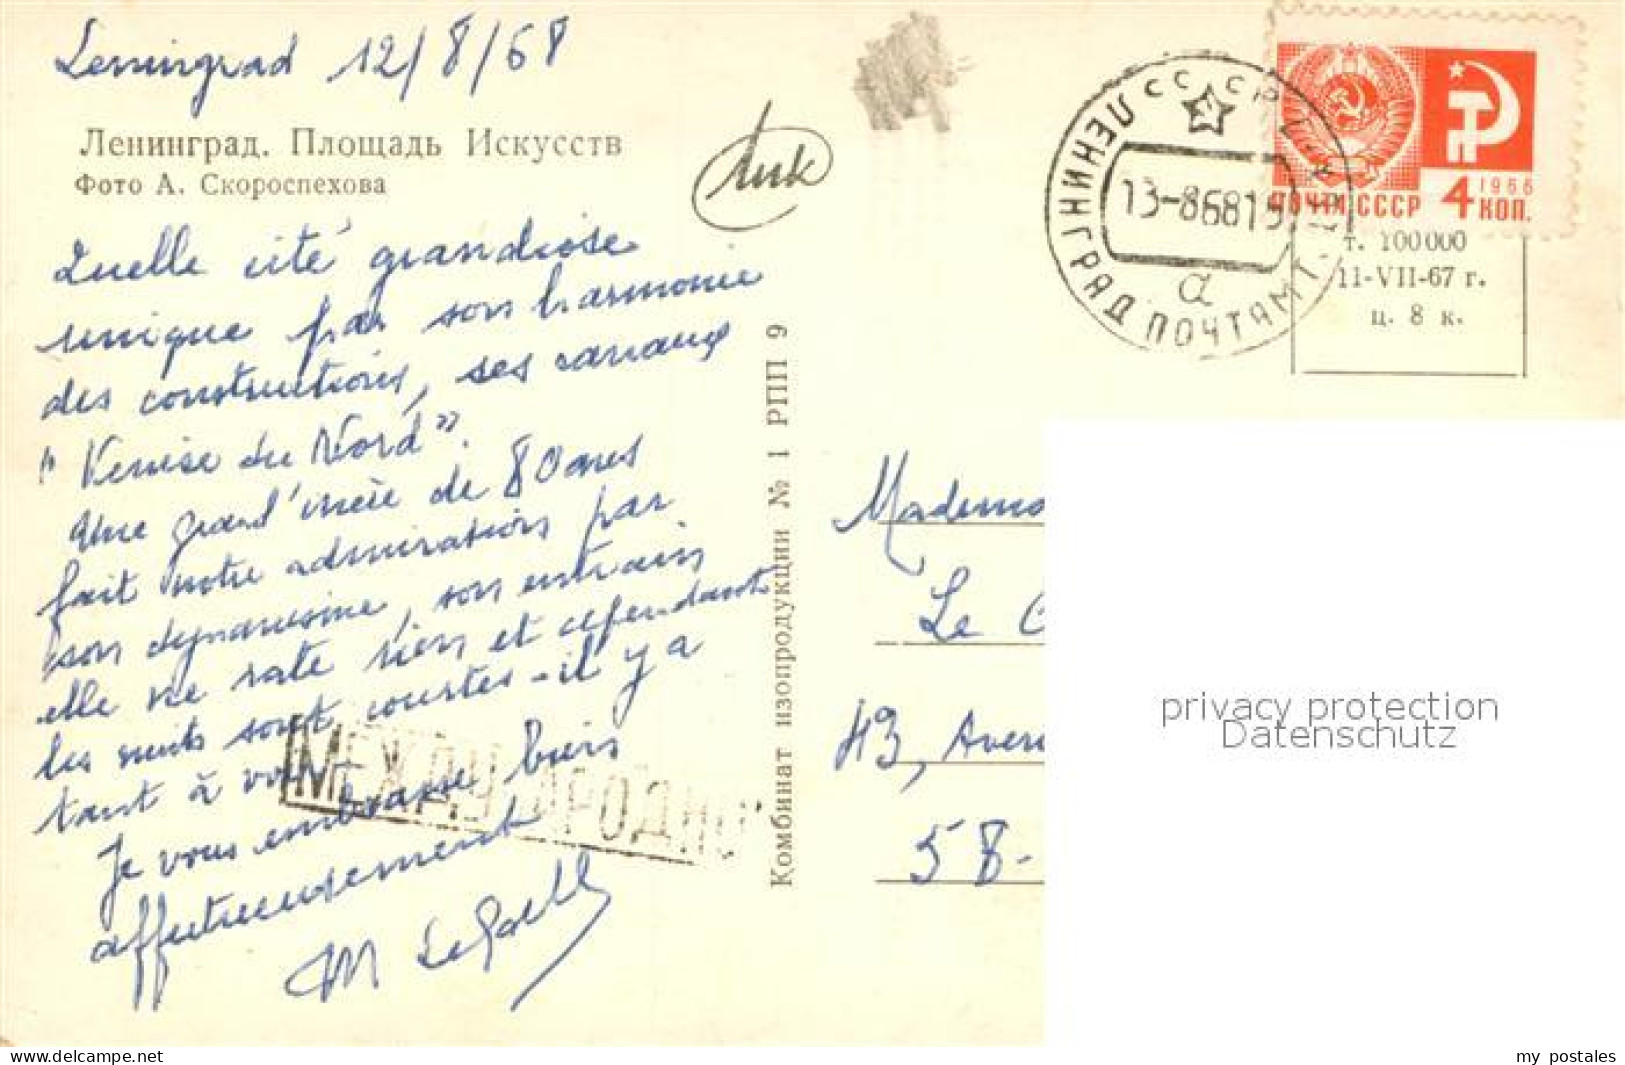 Leningrad 12/8/68
Ленинград. Площадь Искусств
Фото А. Скороспехова
Quelle cité grandiose
unique par son harmonie
des constructions, ses canaux
"Venise du Nord".
Une grand'mère de 80 ans
fait notre admiration par
son dynamisme, son entrain
elle ne rate rien et cependant
les nuits sont courtes - il y a
tant à voir
Je vous embrasse bien
affectueusement
М
МЕЖДУНАРОДНО
Комбинат изопродукции № 1 РПП 9
СССР
ЛЕНИНГРАД ПОЧТАМТ
13-86815
а
ПОЧТА СССР
4
1966
КОП.
т. 100 000
11-VII-67 г.
ц. 8 к.
Mademo
Le C
43, Aven
58-
privacy protection
Datenschutz
my postales